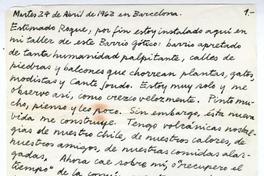 Martes 24 de Abril de 1962 en Barcelona. 1.-
Estimado Roque, por fin estoy instalado aquí en
mi taller de este Barrio gótico: barrio apretado
de tanta humanidad palpitante, calles de
piedras y balcones que chorrean plantas, gatos,
modistas y Cante Jondo. Estoy muy solo y me
observo así, como crezco velozmente. Pinto mu-
cho, pienso y leo poco. Sin embargo, esta nueva
vida me construye. Tengo volcánicas nostal-
gias de nuestro Chile, de nuestros calores, de
nuestros amigos, de nuestras comidas alar-
gadas. Ahora cae sobre mi, o "recupero el
tiempo" de la